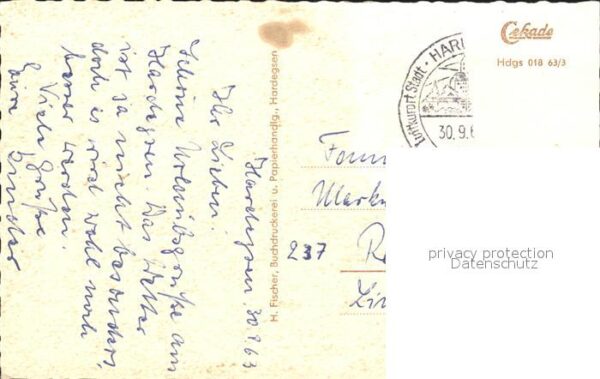 Hardegsen 30.9.63
Ihr Lieben.
Schöne Urlaubsgrüße aus
Hardegsen. Das Wetter
ist ja nicht besonders,
doch es wird wohl noch
besser werden.
Viele Grüße
H. Fischer, Buchdruckerei u. Papierhandlg., Hardegsen
Cekade
Hdgs 018 63/3
Luftkurort Stadt · HAR
30.9.6
237
privacy protection
Datenschutz